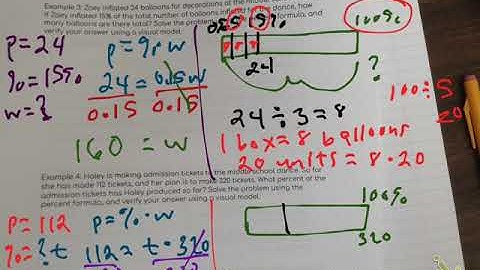 Example 3: Zoey inflated 24 balloons for decorations at the middle school dance.
If Zoey inflated 15% of the total number of balloons inflated for the dance, how
many balloons are there total? Solve the problem using the percent formula, and
verify your answer using a visual model.
p=24
%=15%
w=?
p=%·w
24=0.15w
0.15 0.15
160=w
15%
100%
24
?
24÷3=8
1 box=8 balloons
20 units=8·20
100÷5
20
Example 4: Haley is making admission tickets to the middle school dance. So far
she has made 112 tickets, and her plan is to make 320 tickets. What percent of the
admission tickets has Haley produced so far? Solve the problem using the
percent formula, and verify your answer using a visual model.
p=112
%=?t
p=%·w
112=t·320
100%
320